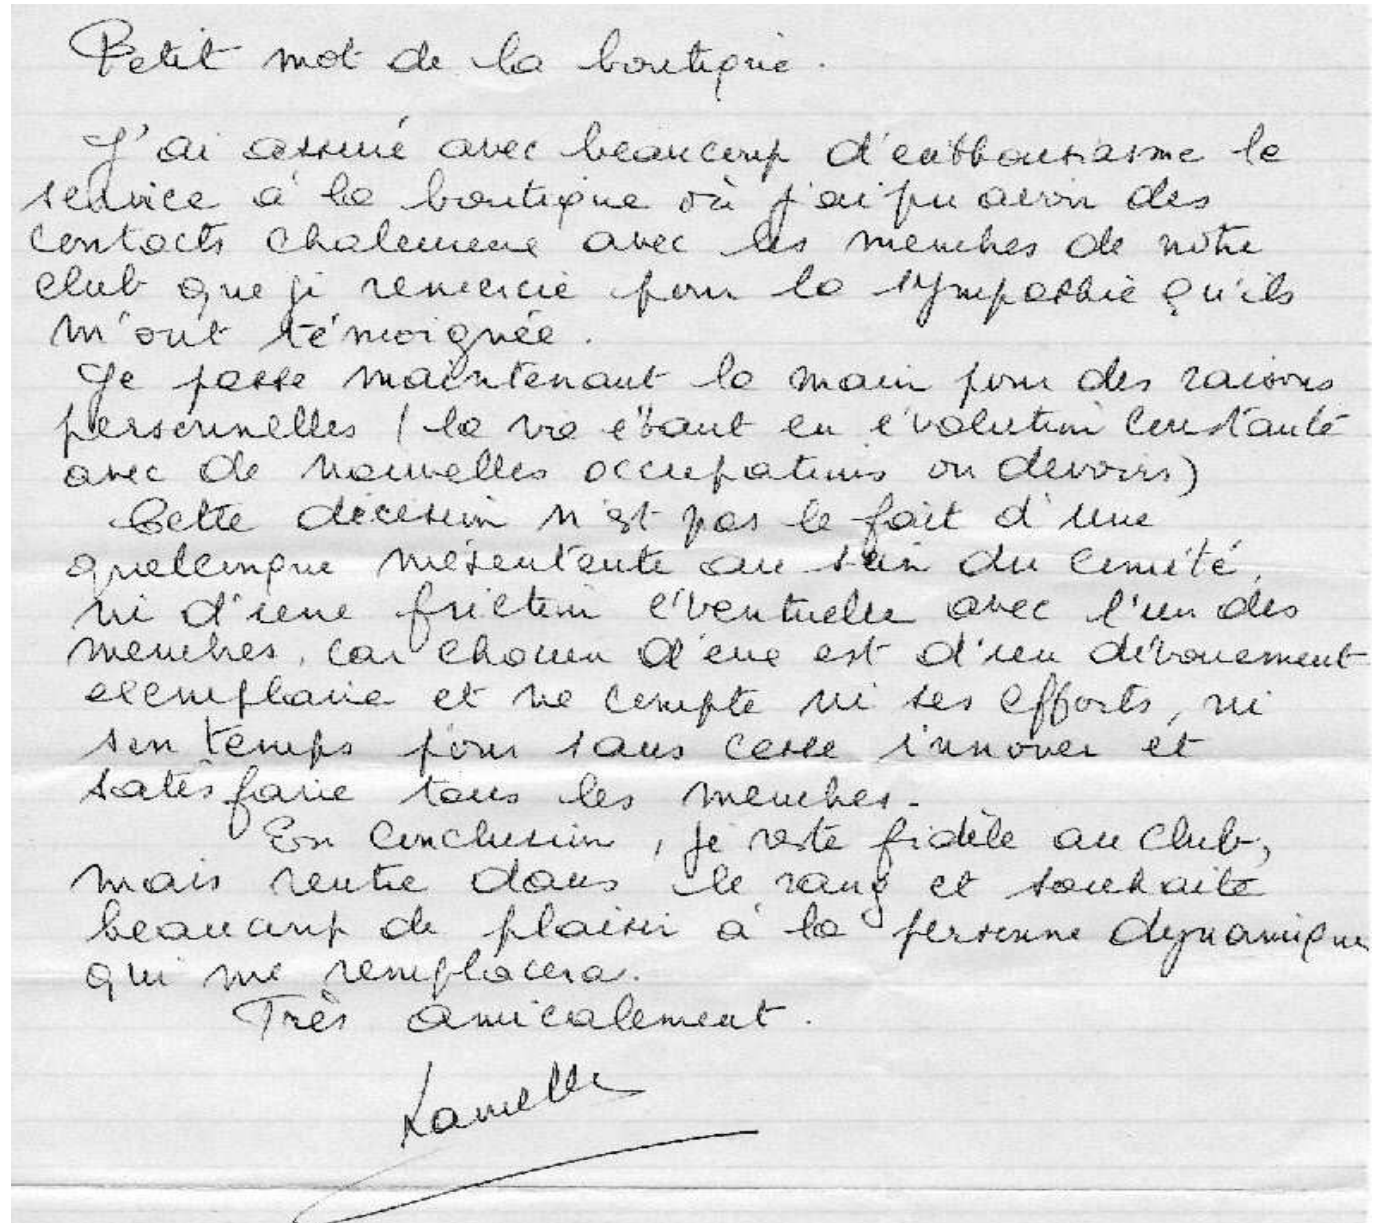 Petit mot de la boutique.
J'ai assuré avec beaucoup d'enthousiasme le
service à la boutique où j'ai pu avoir des
contacts chaleureux avec les membres de notre
club que je remercie pour la sympathie qu'ils
m'ont témoignée.
Je passe maintenant la main pour des raisons
personnelles (la vie étant en évolution constante
avec de nouvelles occupations ou devoirs)
Cette décision n'est pas le fait d'une
quelconque mésentente au sein du comité,
ni d'une friction éventuelle avec l'un des
membres, car chacun d'eux est d'un dévouement
exemplaire et ne compte ni ses efforts, ni
son temps pour sans cesse innover et
satisfaire tous les membres.
En conclusion, je reste fidèle au club,
mais rentre dans le rang et souhaite
beaucoup de plaisir à la personne dynamique
qui me remplacera.
Très amicalement.